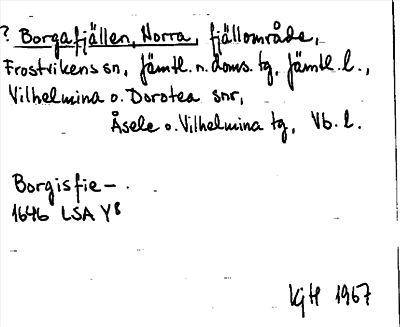 ? Borgafjällen, Norra, fjällområde,
Frostvikens sn, Jämtl. n. doms. tg, Jämtl. l.,
Vilhelmina o. Dorotea snr,
Åsele o. Vilhelmina tg, Vb. l.
Borgisfie – .
1646 LSA Y8
KjH 1967